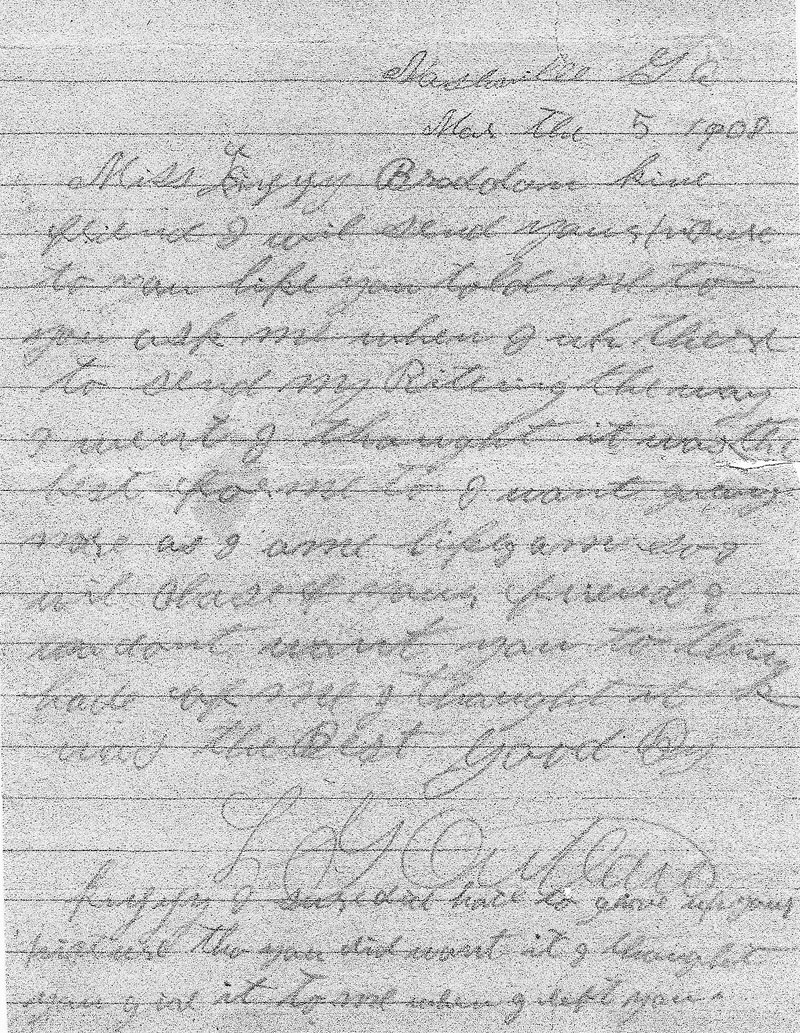 Nashville Ga
Mar the 5 1908
Miss Braddom kine
friend I wil send your picture
to you like you told me to
you ask me when I uh there
to send my Riteing the way
I went I thought it was the
best for me to I want
more as I ame
wil Close your friend I
dont want you to think
hade of me I thought it
was the Best Good By
L G
I sure did hate to give up your
picture tho you did want it I thought
you give it to me when I left you.